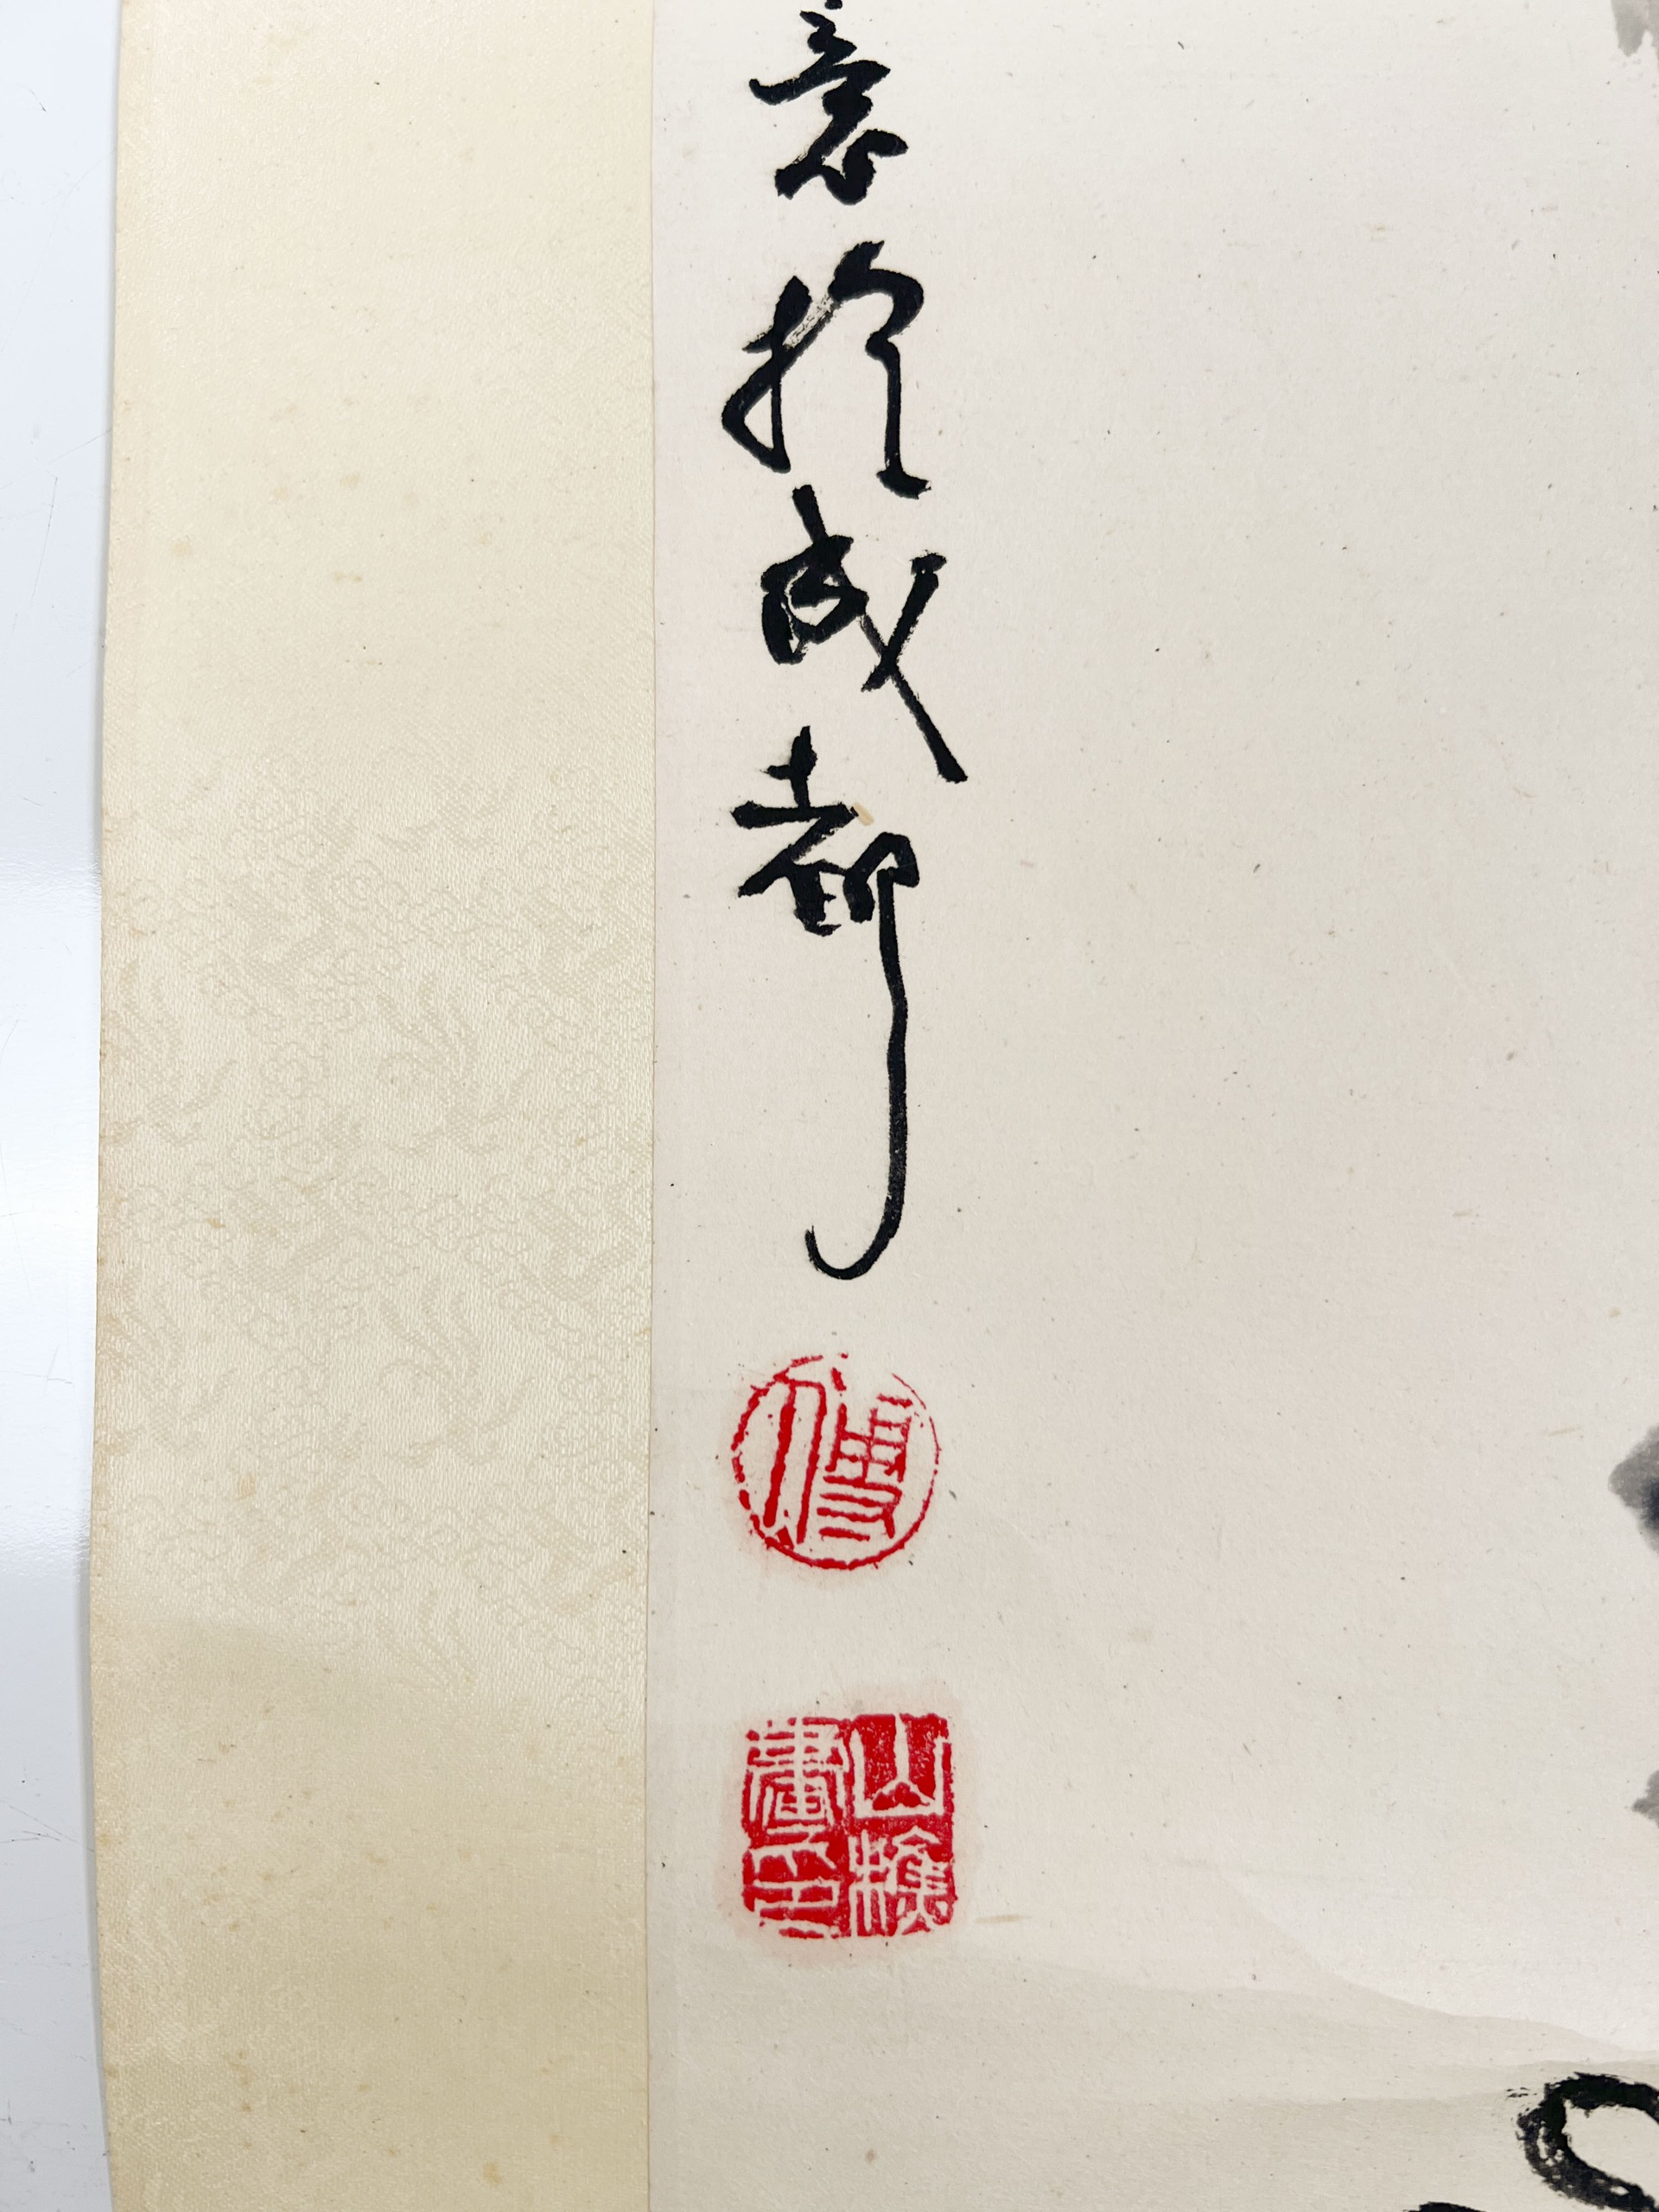 意於成都
傅
山樵
畫印